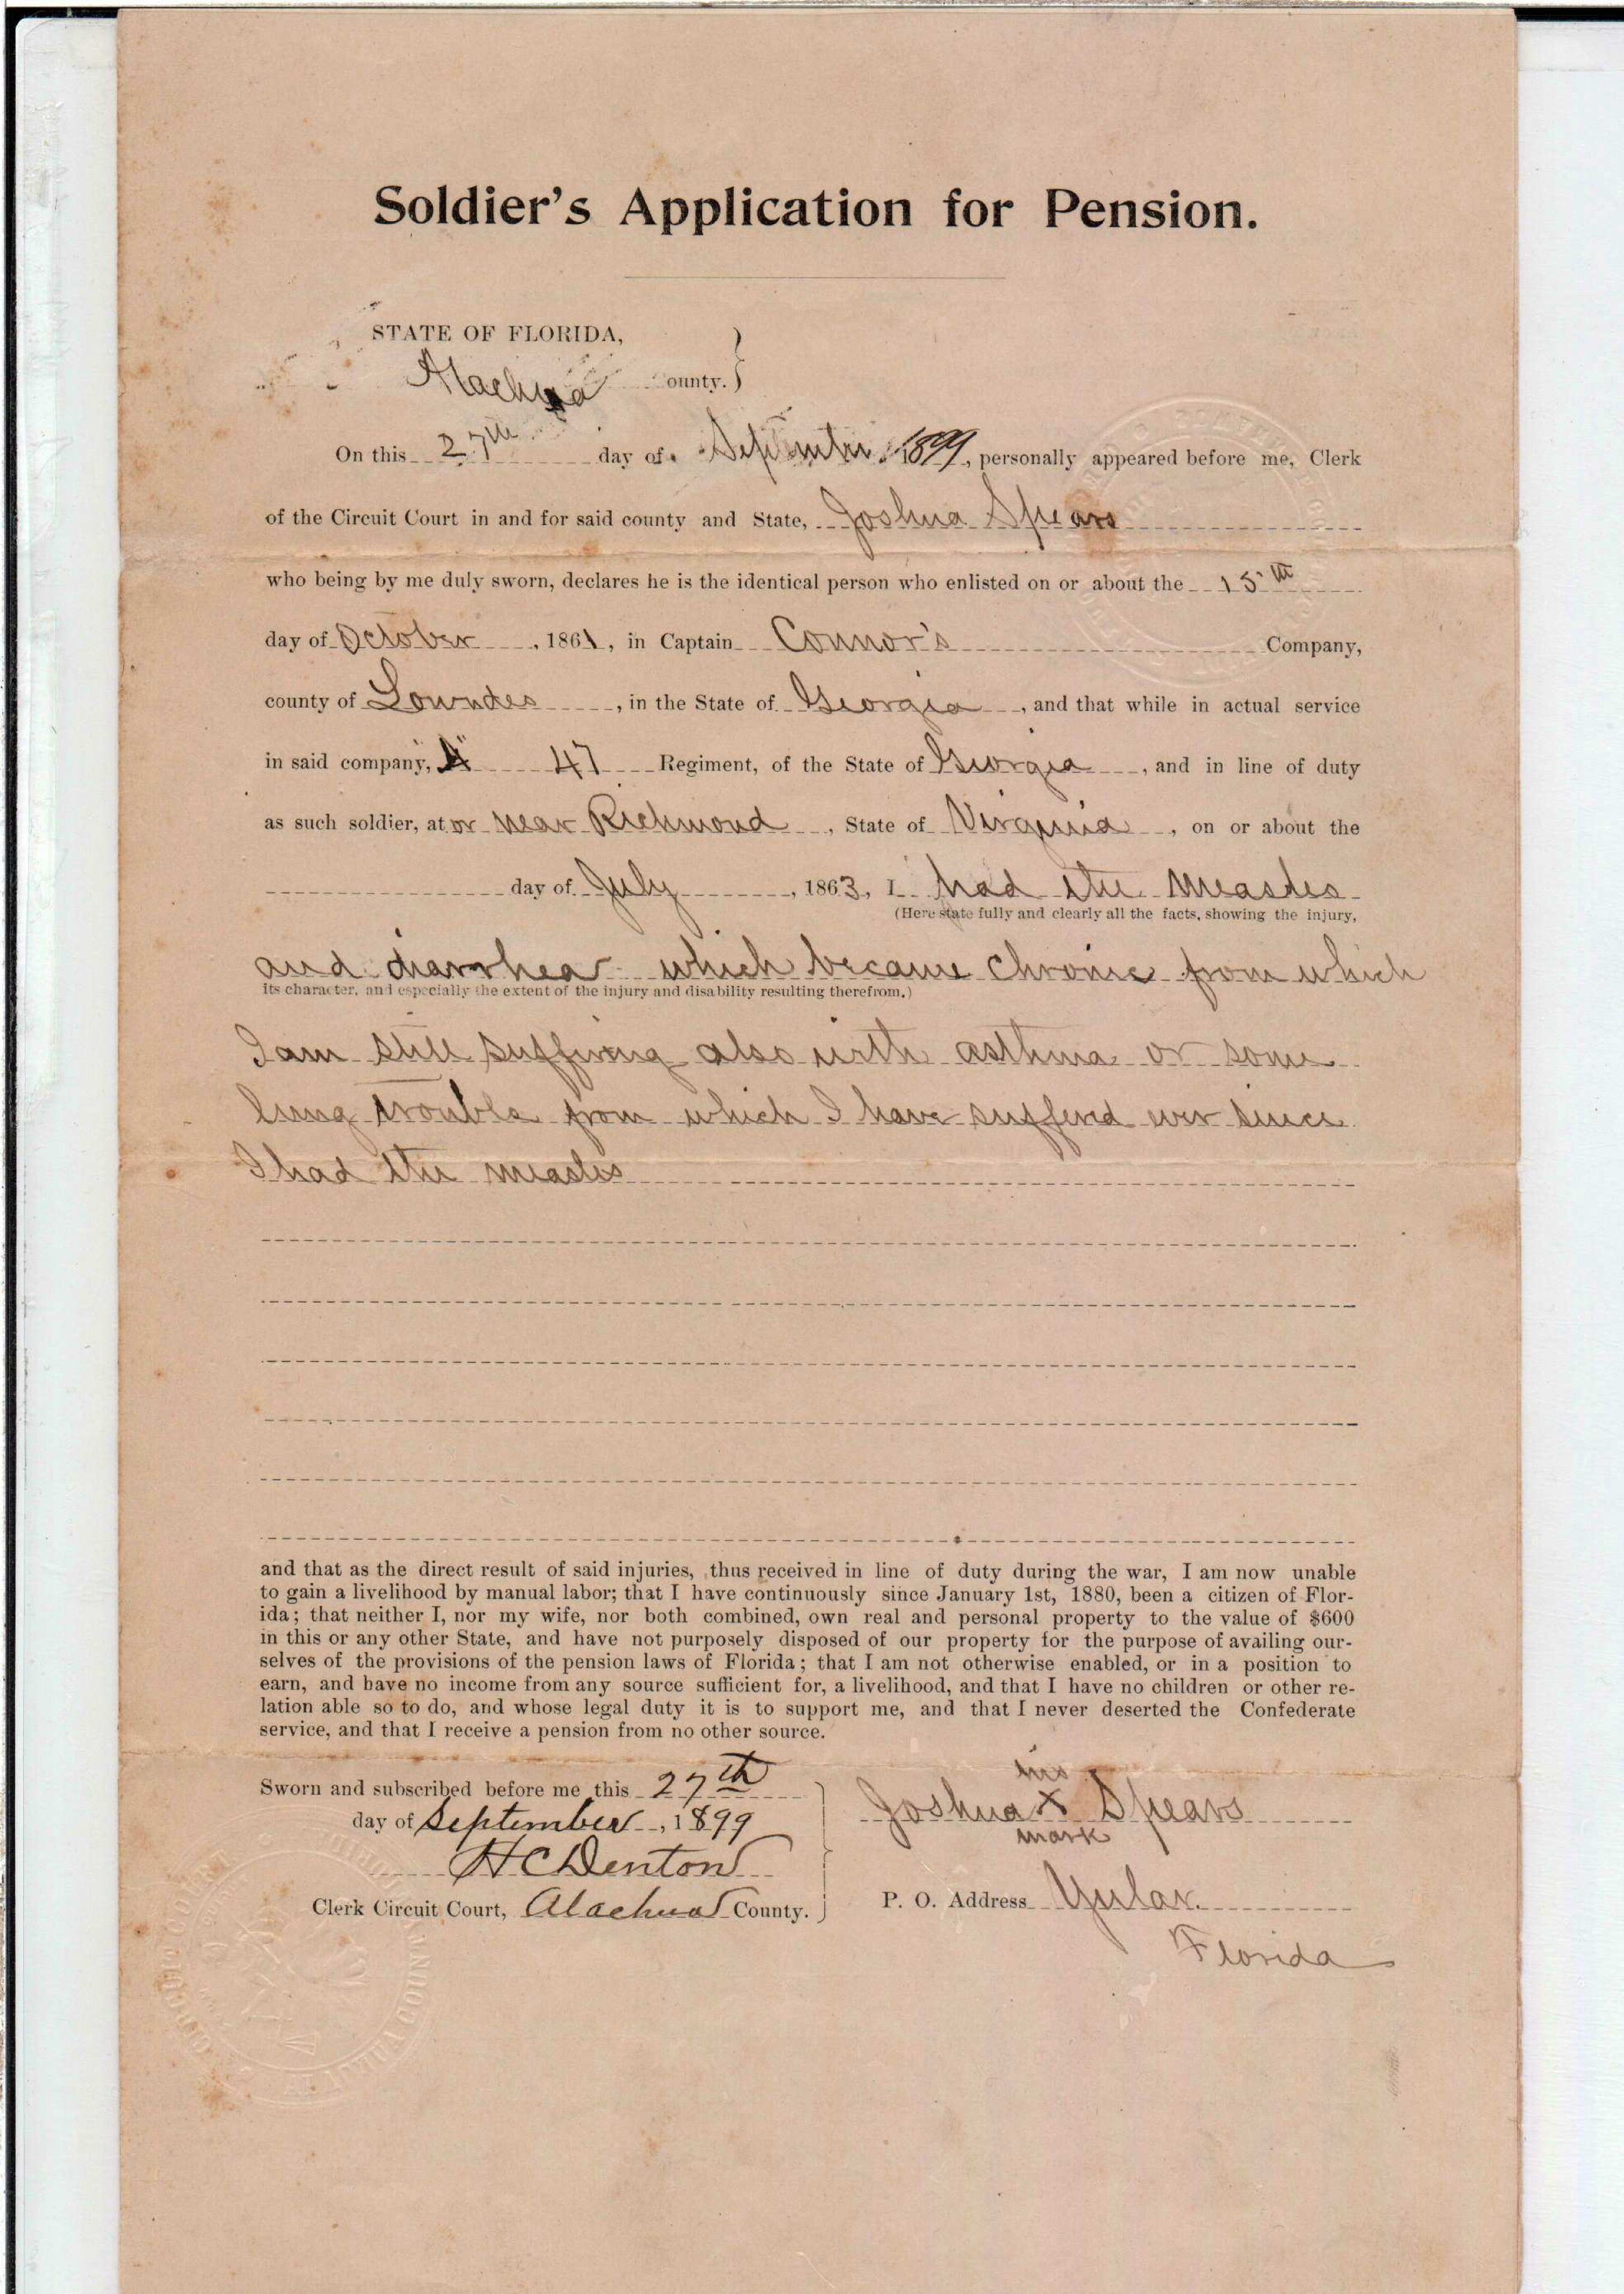 Soldier's Application for Pension.
STATE OF FLORIDA,
Alachua County.
On this 27th day of September 1899, personally appeared before me, Clerk
of the Circuit Court in and for said county and State, Joshua Spears
who being by me duly sworn, declares he is the identical person who enlisted on or about the 15th
day of October, 1861, in Captain Connor's Company,
county of Lowndes, in the State of Georgia, and that while in actual service
in said company, "A" 47 Regiment, of the State of Georgia, and in line of duty
as such soldier, at or near Richmond, State of Virginia, on or about the
day of July, 1863, I had the Measles
(Here state fully and clearly all the facts, showing the injury,
and diarrhea which became Chronic from which
its character, and especially the extent of the injury and disability resulting therefrom.)
I am still suffering also with asthma or some
lung trouble from which I have sufferd ever since
I had the measles
and that as the direct result of said injuries, thus received in line of duty during the war, I am now unable
to gain a livelihood by manual labor; that I have continuously since January 1st, 1880, been a citizen of Flor-
ida; that neither I, nor my wife, nor both combined, own real and personal property to the value of $600
in this or any other State, and have not purposely disposed of our property for the purpose of availing our-
selves of the provisions of the pension laws of Florida; that I am not otherwise enabled, or in a position to
earn, and have no income from any source sufficient for, a livelihood, and that I have no children or other re-
lation able so to do, and whose legal duty it is to support me, and that I never deserted the Confederate
service, and that I receive a pension from no other source.
Sworn and subscribed before me this 27th
day of September, 1899
H C Denton
Clerk Circuit Court, Alachua County.
his
Joshua X Spears
mark
P. O. Address Yular.
Florida